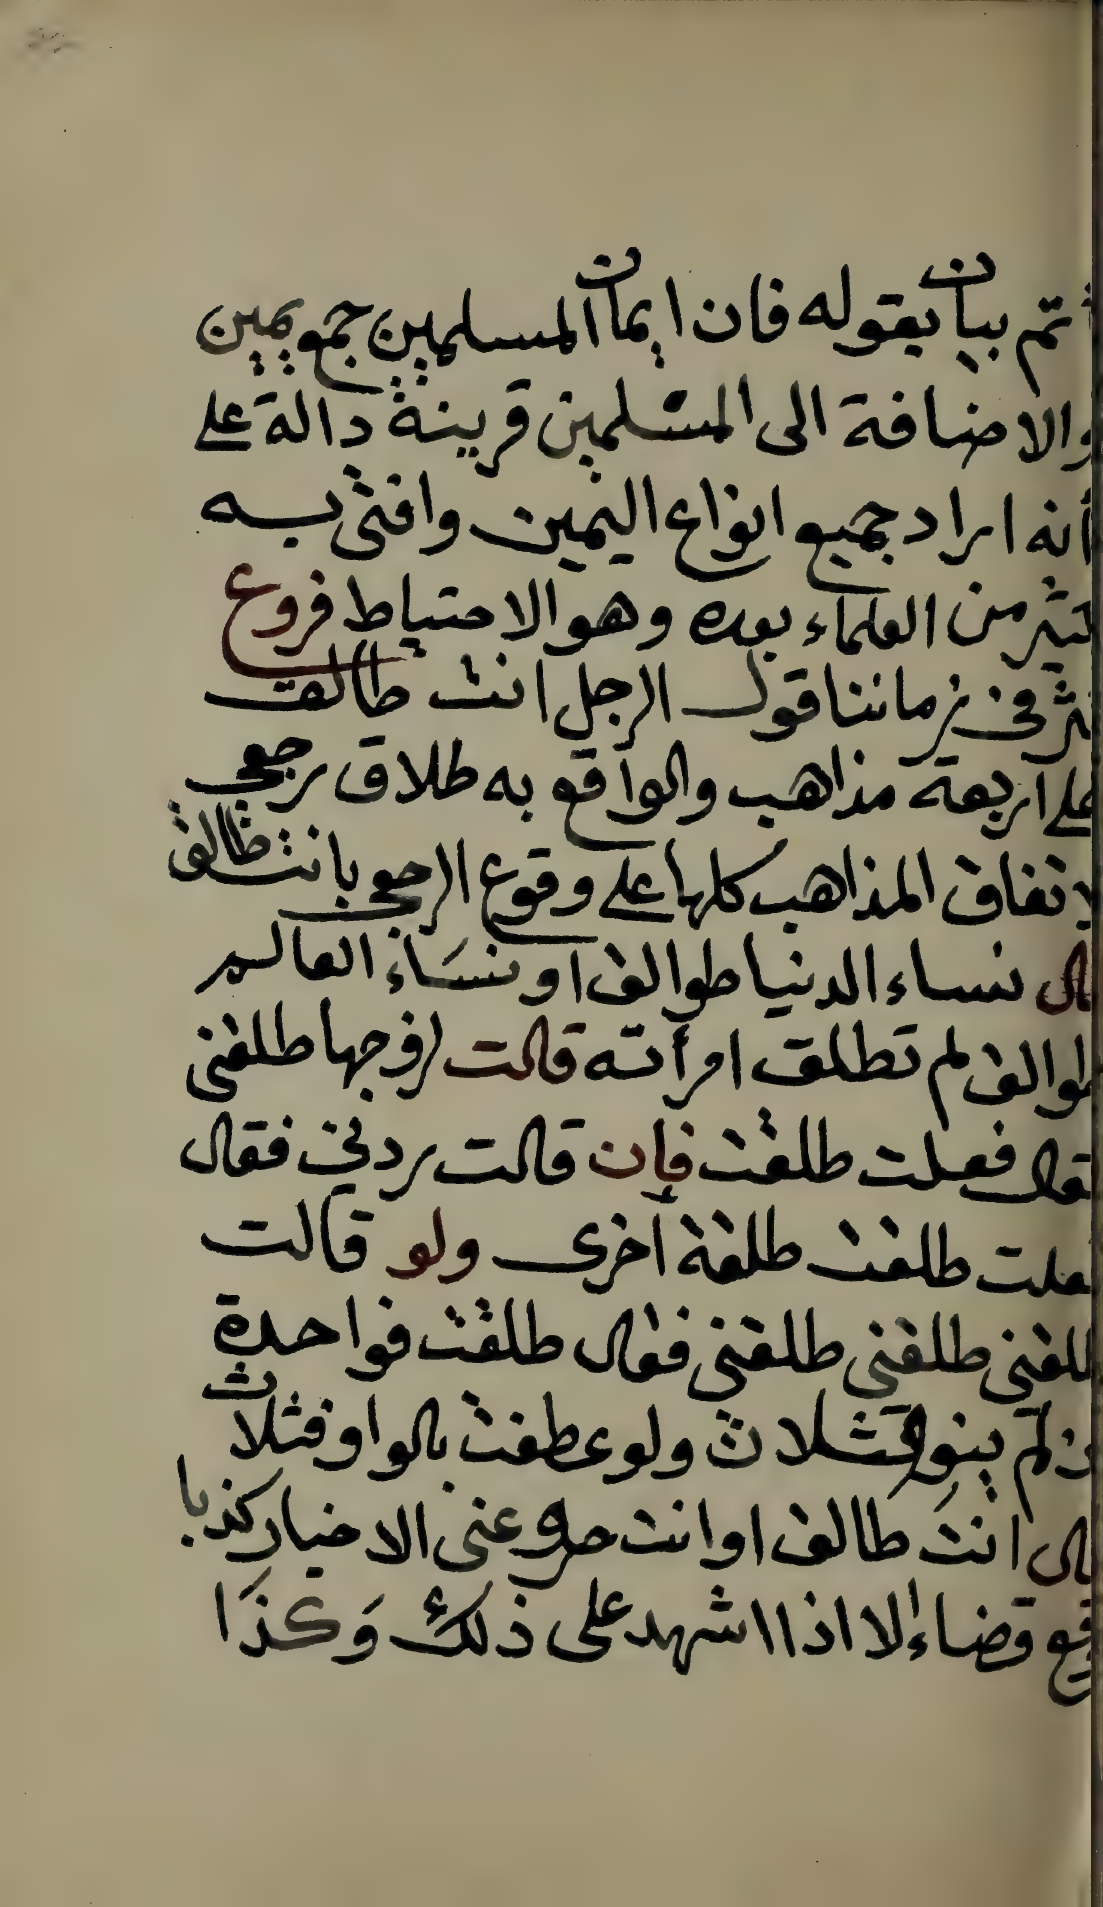 تم بيان بقوله فان ايمان المسلمين جمع يمين
والاضافة الى المسلمين قرينة دالة على
أنه اراد جميع انواع اليمين وافتى به
كثير من العلماء بعده وهو الاحتياط فروع
كثر فى زماننا قول الرجل انت طالق
على اربعة مذاهب والواقع به طلاق رجعى
لاتفاق المذاهب كلها على وقوع الرجعى بانت طالق
قال نساء الدنيا طوالق او نساء العالم
طوالق لم تطلق امرأته قالت لزوجها طلقنى
فقال فعلت طلقت فإن قالت زدنى فقال
فعلت طلقت طلقة أخرى ولو قالت
طلقنى طلقنى طلقنى فقال طلقت فواحدة
ان لم ينو ثلاث ولو عطفت بالواو فثلاث
قال انت طالق او انت حر وعنى الاخبار كذبا
وقع قضاء إلا اذا اشهد على ذلك وكذا